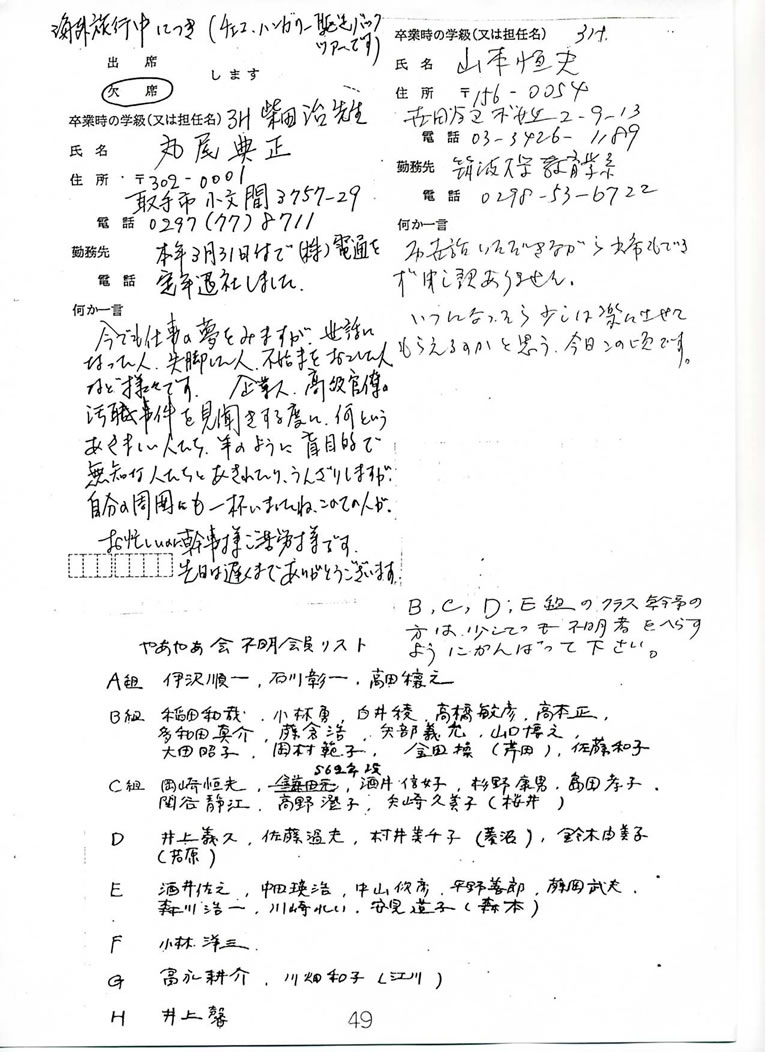 海外旅行中につき(チェコ、ハンガリー駆足パック
ツアーです)
出 席
欠 席
します
卒業時の学級(又は担任名) 3H 柴田治先生
氏 名 丸尾典正
住 所 〒302-0001
取手市小文間3757-29
電 話 0297(77)8711
勤務先 本年3月31日付で(株)電通を
電 話 定年退社しました。
何か一言
今でも仕事の夢をみますが、世話に
なった人、失脚した人、不始末をおこした人
など様々です。 企業人、高級官僚の
汚職事件を見聞きする度に、何という
あさましい人たち、羊のように盲目的で
無知な人たちとあきれたり、うんざりしますが、
自分の周囲にも一杯いましたね、このての人が。
お忙しいのに幹事様ご苦労様です。
先日は遅くまでありがとうございます。
卒業時の学級(又は担任名) 3H.
氏 名 山本恒夫
住 所 〒156-0054
世田谷区桜丘2-9-13
電 話 03-3426-1189
勤務先 筑波大学教育学系
電 話 0298-53-6722
何か一言
お世話いただきながら出席もでき
ず申し訳ありません。
いつになったら少しは楽にさせて
もらえるのかと思う、今日この頃です。
B,C,D,E組のクラス幹事の
方は、少しでも不明者をへらす
ようにがんばって下さい。
やあやあ会 不明会員リスト
A組 伊沢順一,石川彰一,高田穰之
B組 稲田和哉,小林勇,白井稜,高橋敏彦,高本正,
多和田真介,藤倉浩,矢部義光,山口博之
大田昭子,岡村範子,金田操(芹田),佐藤和子
S62年没
C組 岡崎恒夫,酒井信好,杉野康男,島田孝子,
関谷静江,高野澄子,矢崎久美子(桜井)
D 井上義久,佐藤温夫,村井美千子(菱沼),鈴木由美子
(菅原)
E 酒井佐之,中田瑛浩,中山欣彦,平野善郎,藤岡武夫,
森川浩一,川崎れい,安見道子(森本)
F 小林洋三
G 高永耕介,川畑和子(江川)
H 井上馨
49